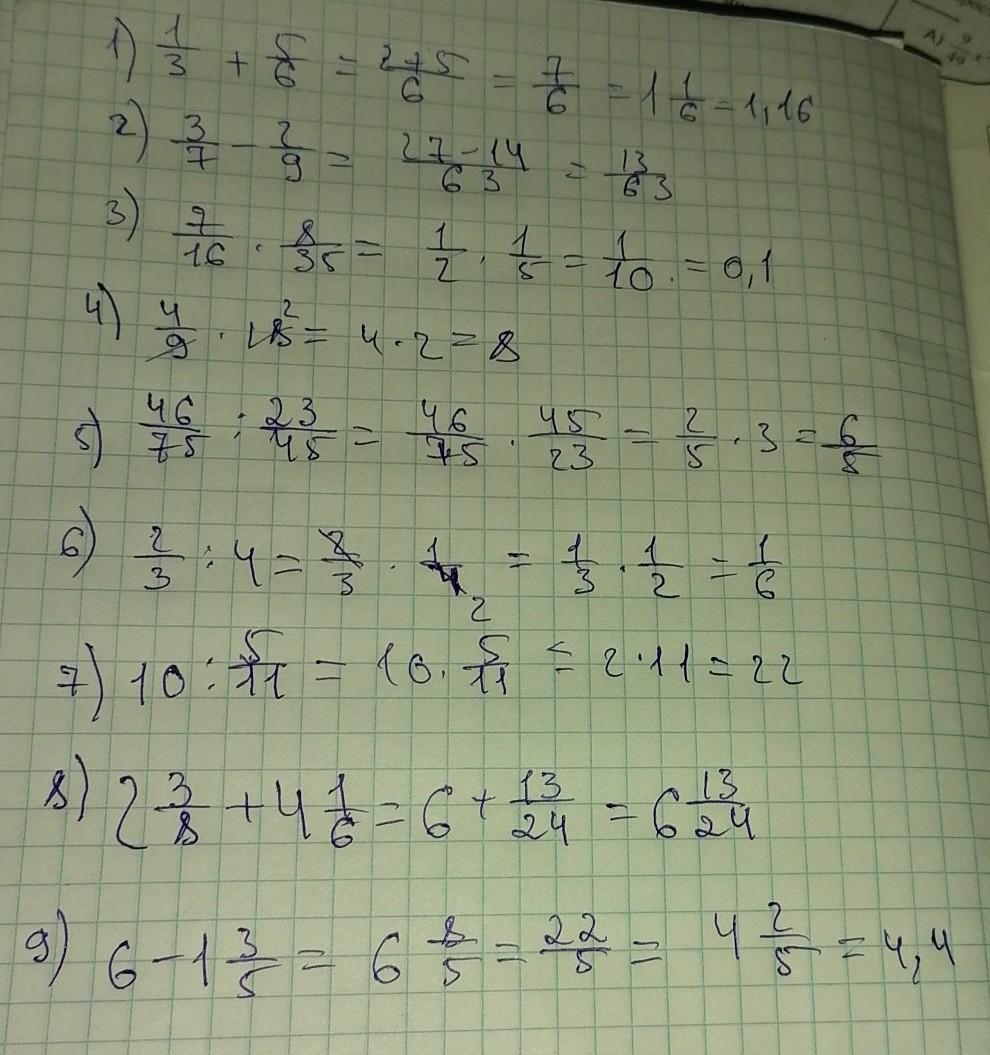 A) 9
1) 1/3 + 5/6 = (2+5)/6 = 7/6 = 1 1/6 = 1,16
2) 3/7 - 2/9 = (27-14)/63 = 13/63
3) 7/16 · 8/35 = 1/2 · 1/5 = 1/10 . = 0,1
4) 4/9 · 18 2 = 4 · 2 = 8
5) 46/75 : 23/45 = 46/75 · 45/23 = 2/5 · 3 = 6/5
6) 2/3 : 4 = 2/3 · 1/4 2 = 1/3 · 1/2 = 1/6
7) 10 : 5/11 = 10 · 5/11 = 2 · 11 = 22
8) 2 3/8 + 4 1/6 = 6 + 13/24 = 6 13/24
9) 6 - 1 3/5 = 6 8/5 = 22/5 = 4 2/5 = 4,4